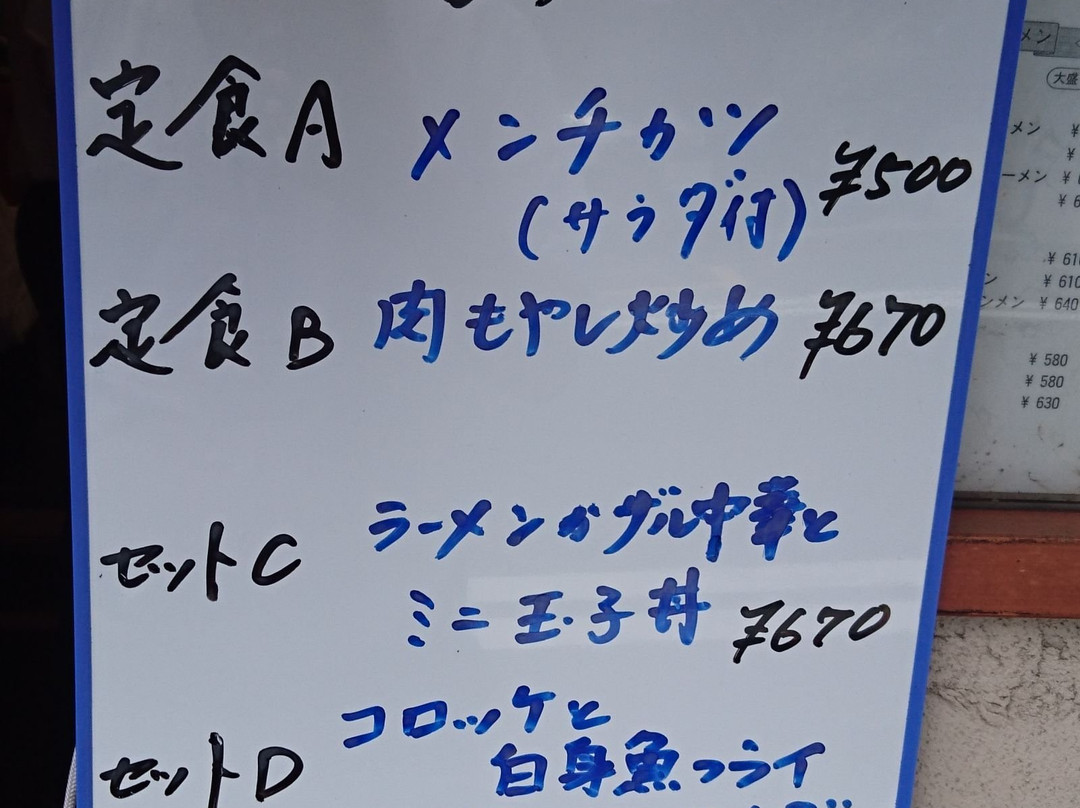 定食A メンチカツ
(サラダ付) ¥500
定食B 肉もやし炒め ¥670
セットC ラーメンかザル中華と
ミニ玉子丼 ¥670
セットD コロッケと
白身魚フライ
メン
大盛
メン ¥
¥
ーメン ¥
¥ 6
¥ 610
ン ¥ 610
ンメン ¥ 640
¥ 580
¥ 580
¥ 630